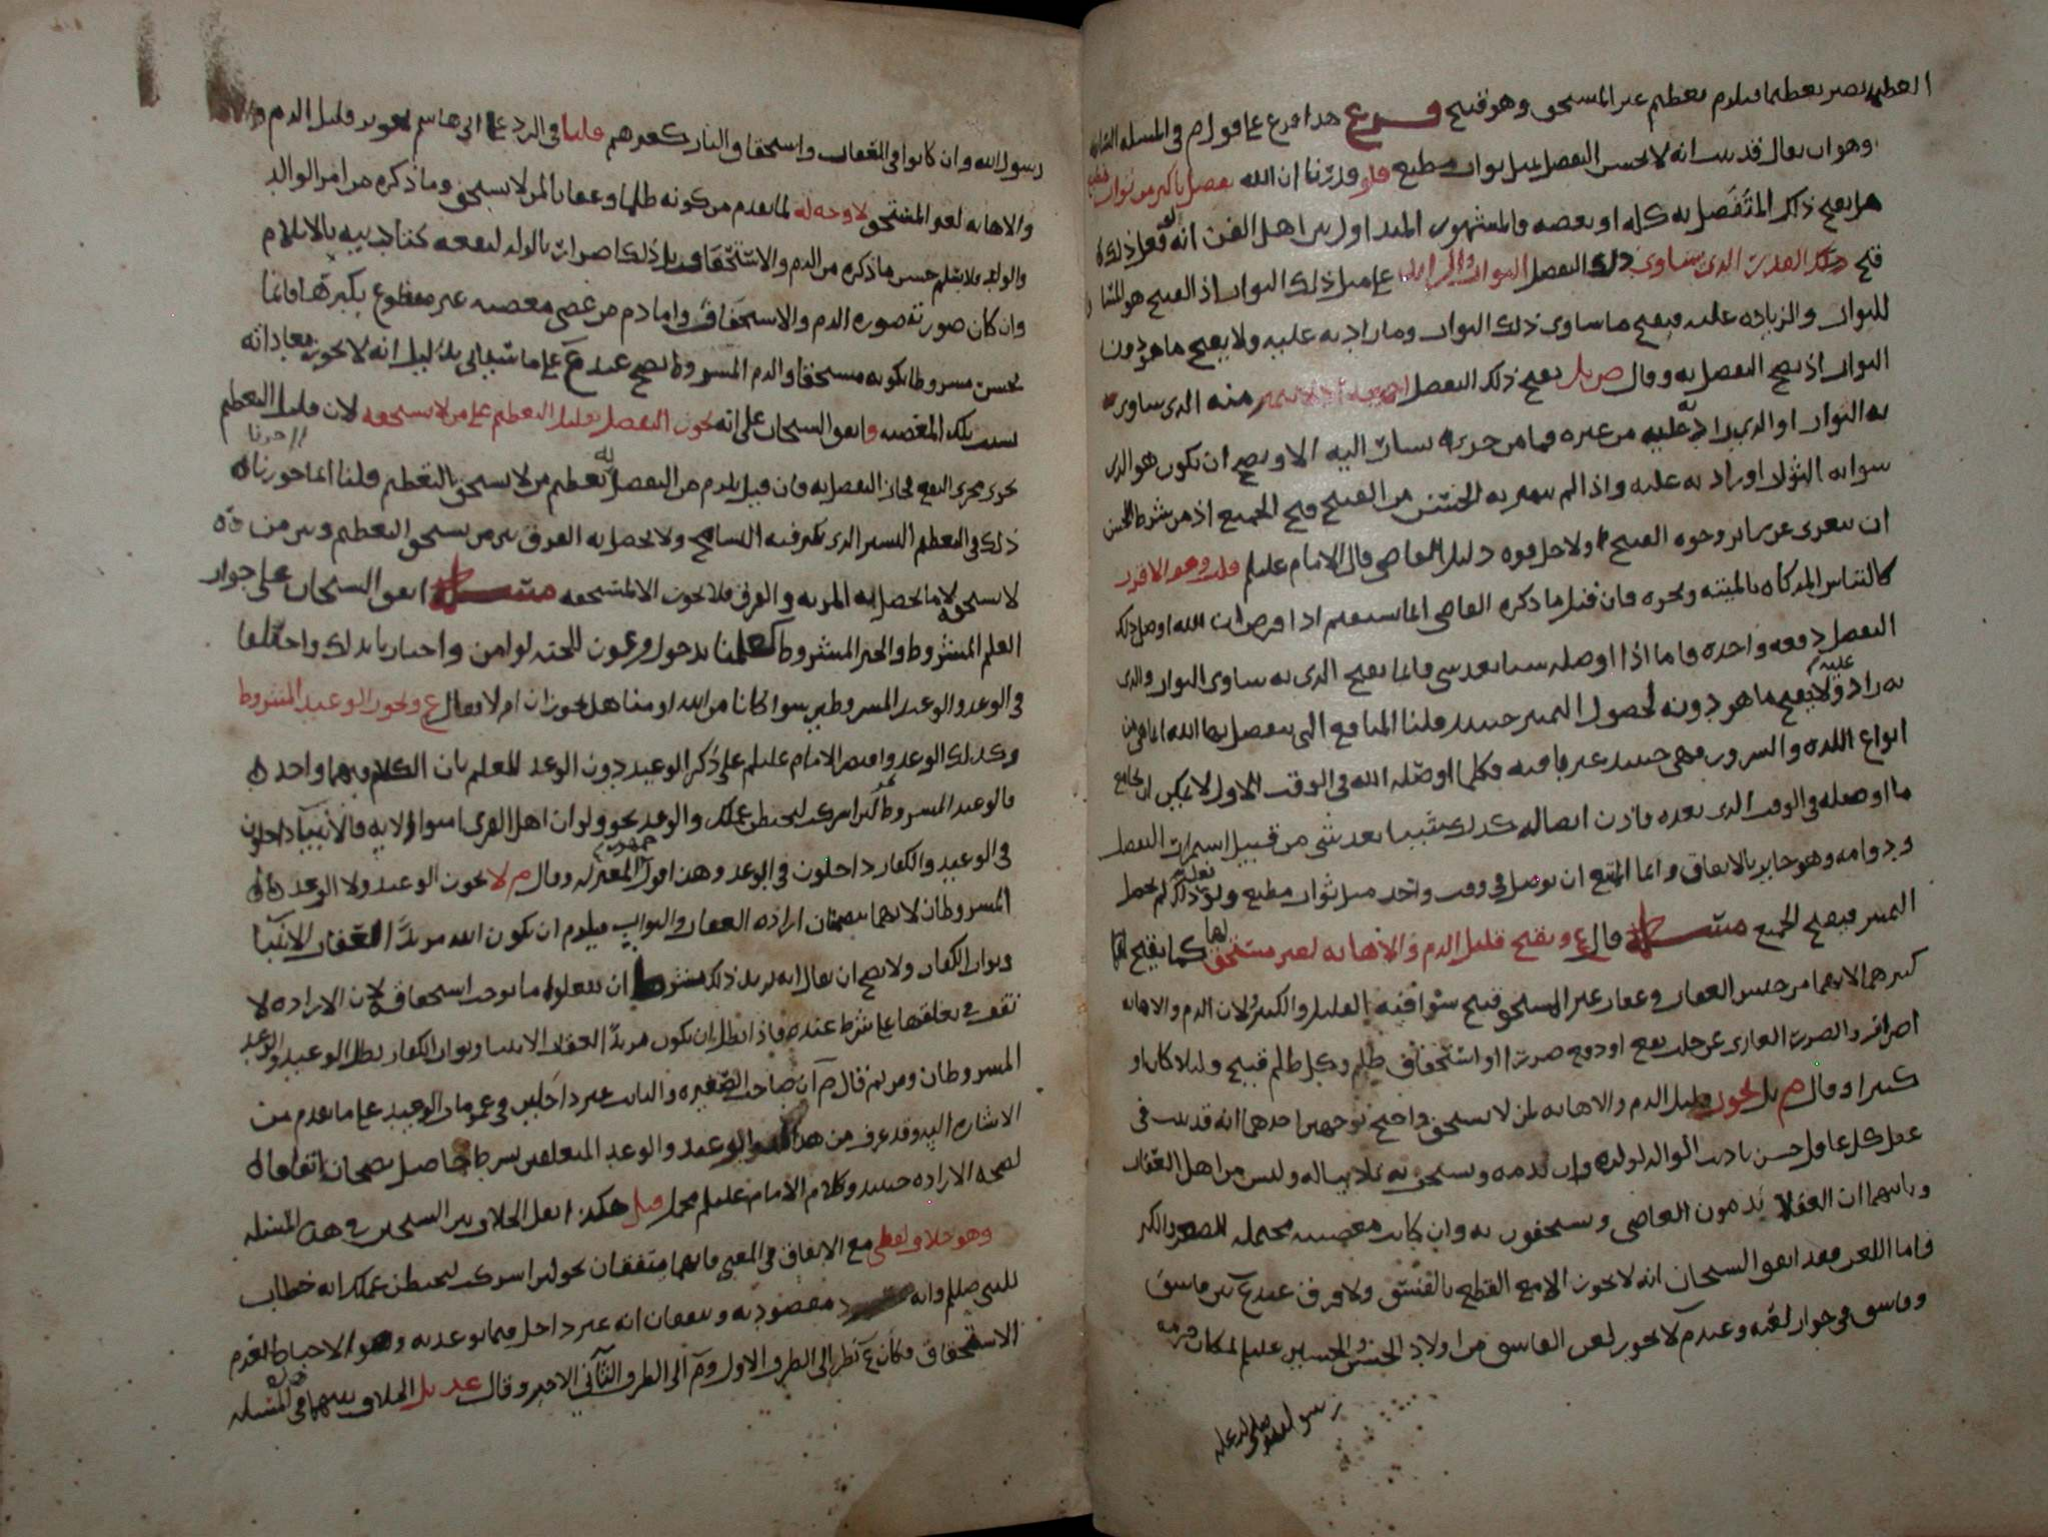 العظيم يصير تعظيما فيلزم تعظيم غير المستحق وهو قبيح فرع هذا فرع على قول م في المسئلة
وهو ان يقال قد ثبت انه لا يحسن التفضل بمثل ثواب مطيع فلو قدرنا ان الله تفضل باكثر من ثواب
هل يقبح ذلك المتفضل به كله او بعضه فالمشهور المتداول بين اهل الفن انه لو فعل ذلك
قبح ذلك القدر الذي يساوي ذلك التفضل الثواب على مثل ذلك الثواب اذ القبيح هو
للثواب والزيادة عليه فيقبح ما ساوى ذلك الثواب وما زاد به عليه ولا يقبح ما هو دون
الثواب اذ يصح التفضل به وقال ص بل يقبح ذلك التفضل منه الذي ساوى
به الثواب او الذي زاد عليه من غيره فما من جزء يشار اليه الا ويصح ان يكون هو الذي
ساوى به الثواب او زاد به عليه واذا لم يتميز به الحسن من القبيح قبح الجميع اذ من شرط الحسن
ان يتعرى عن سائر وجوه القبح ولاجل قوة دليل القاضي قال الامام عليلم قلت وهو الاقرب
كالتباس المذكاة بالميتة ونحوه فان قيل ما ذكره القاضي انما يستقيم اذا فرض ان الله اوصل ذلك
التفضل دفعة واحدة فاما اذا اوصله شيئا بعد شي فانما يقبح الذي به ساوى الثواب والذي
به زاد عليه ولا يقبح ما هو دونه لحصول التميز حينئذ قلنا المنافع التي يتفضل بها الله انما هي من
انواع اللذة والسرور فهي حينئذ غير باقية فكلما اوصله الله في الوقت الاول لا يمكن ان يجامع
ما اوصله في الوقت الذي بعده فاذن ايصاله كذلك شيئا بعد شي من قبيل استمرار التفضل
ودوامه وهو جايز بالاتفاق وانما الممتنع ان يوصل في وقت واحد مثل ثواب مطيع ولو فعل ذلك لم يحصل
التميز فيقبح الجميع مسئلة قال ع ويقبح قليل الذم والاهانة لغير مستحق لها كما يقبح
كثيرهما لانهما من جنس العقاب وعقاب غير المستحق قبيح سوا فيه القليل والكثير لان الذم والاهانة
اضرار والضرر العاري عن جلب نفع او دفع ضرر او استحقاق ظلم وكل ظلم قبيح قليلا كان او
كثيرا وقال م بل يجوز قليل الذم والاهانة لمن لا يستحق واحتج بوجهين احدهما انه قد ثبت في
عقل كل عاقل حسن تاديب الوالد لولده وان يذمه ويستخف به بلا مبالة وليس من اهل العقاب
وثانيهما ان العقلا يذمون العاصي ويستخفون به وان كانت معصيته محتملة للصغر والكبر
فاما اللعن فقد اتفق الشيخان انه لا يجوز الا مع القطع بالفسق ولا فرق عند ع بين فاسق
وفاسق في جواز لعنه وعند م لا يجوز لعن الفاسق من اولاد الحسن والحسين عليلم لمكان حرمة
رسول الله صلى الله عليه
رسول الله وان كانوا في العقاب واستحقاق النار كغيرهم قلنا في الرد على ابي هاشم تجويز قليل الذم
والاهانة لغير المستحق لا وجه له لما تقدم من كونه ظلما وعقابا لمن لا يستحق وما ذكره من امر الوالد
والولد فلا نسلم حسن ما ذكره من الذم والاستخفاف بل ذلك اضرار بالولد لنفعه كتاديبه بالايلام
وان كان صورته صورة الذم والاستخفاف واما ذم من عصى معصية غير مقطوع بكبرها فانما
يحسن مشروطا بكونه مستحقا والذم المشروط يصح عند ع على ما سياتي بدليل انه لا يجوز معاداته
بسبب تلك المعصية واتفق الشيخان على انه يجوز التفضل بقليل التعظيم على من لا يستحقه لان قليل التعظيم
يجري مجرى النفع فجاز التفضل به فان قيل يلزم من التفضل به تعظيم من لا يستحق التعظيم قلنا انما جوزناه
ذلك في التعظيم اليسير الذي يكثر فيه التسامح ولا يحصل به الفرق بين من يستحق التعظيم وبين من
لا يستحق فاما ما يحصل به المزية والفرق فلا يجوز الا لمستحقه مسئلة اتفق الشيخان على جواز
العلم المشروط والخبر المشروط كعلمنا بدخول فرعون للجنة لو امن واخبارنا بذلك واختلفا
في الوعد والوعيد المشروطين سوا كانا من الله او منا هل يجوزان ام لا فقال ع ويجوز الوعيد المشروط
وكذلك الوعد واقتصر الامام عليلم على ذكر الوعيد دون الوعد للعلم بان الكلام فيهما واحد
فالوعيد المشروط نحو لئن اشركت ليحبطن عملك والوعد نحو ولو ان اهل القرى امنوا الاية فالانبيا داخلون
في الوعيد والكفار داخلون في الوعد وهذا قول جمهور المعتزلة وقال م لا يجوز الوعيد ولا الوعد
المشروطان لانهما يتضمنان ارادة العقاب والثواب فيلزم ان يكون الله مريدا لعقاب الانبيا
وثواب الكفار ولا يصح ان يقال انه يريد ذلك بشرط ان يفعلوا ما يوجب استحقاقه لان الارادة لا
تقف في تعلقها على شرط عنده فاذا بطل ان يكون مريدا لعقاب الانبيا وثواب الكفار بطل الوعيد والوعد
المشروطان ومن ثم قال م ان صاحب الصغيرة والتائب غير داخلين في عموم الوعيد على ما تقدم من
الاشارة اليه وقد عرف من هذا ان الوعيد والوعد المتعلقين بشرط حاصل يصحان اتفاقا
لصحة الارادة حينئذ وكلام الامام عليلم محمل قيل هكذا نقل الخلاف بين الشيخين في هذه المسئلة
وهو خلاف لفظي مع الاتفاق في المعنى فانهما متفقان نحو لئن اشركت ليحبطن عملك انه خطاب
للنبي صللم وانه مقصود به ويتفقان انه غير داخل فيما توعد به وهو الاحباط لعدم
الاستحقاق فكان ع نظر الى الطرف الاول و م الى الطرف الثاني الاخير وقال عد بل الخلاف بينهما في المسئلة